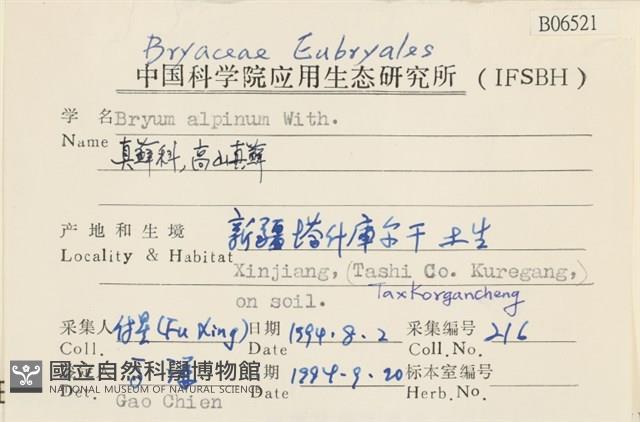 B06521
Bryaceae Eubryales
中国科学院应用生态研究所 (IFSBH)
学 名 Bryum alpinum With.
Name 真藓科,高山真藓
产地和生境 新疆塔什庫尔干 土生
Locality & Habitat Xinjiang, (Tashi Co. Kuregang,)
on soil. Taxkorgancheng
采集人 付星 (Fu Xing) 日期 1994.8.2 采集编号 216
Coll. Date Coll.No.
國立自然科學博物館 期 1994-9.20 标本室编号
NATIONAL MUSEUM OF NATURAL SCIENCE
Det. Gao Chien Date Herb.No.